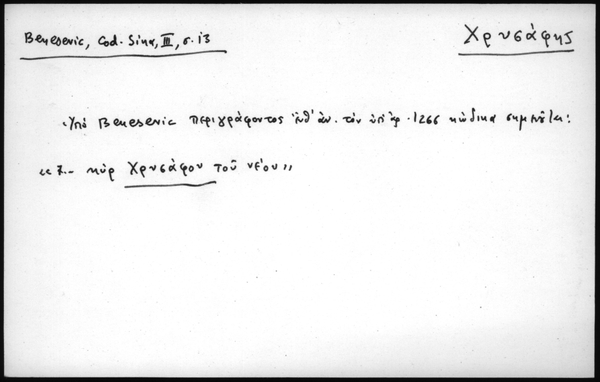 Benesevic, Cod. Sina, III, σ. 13
Χρυσάφης
Ὑπό Benesevic περιγράφοντος ἀνθ' ἀν. τόν ὑπ' ἀρ. 1266 κώδικα σημειοῦται:
κύρ Χρυσάφου τοῦ νέου"